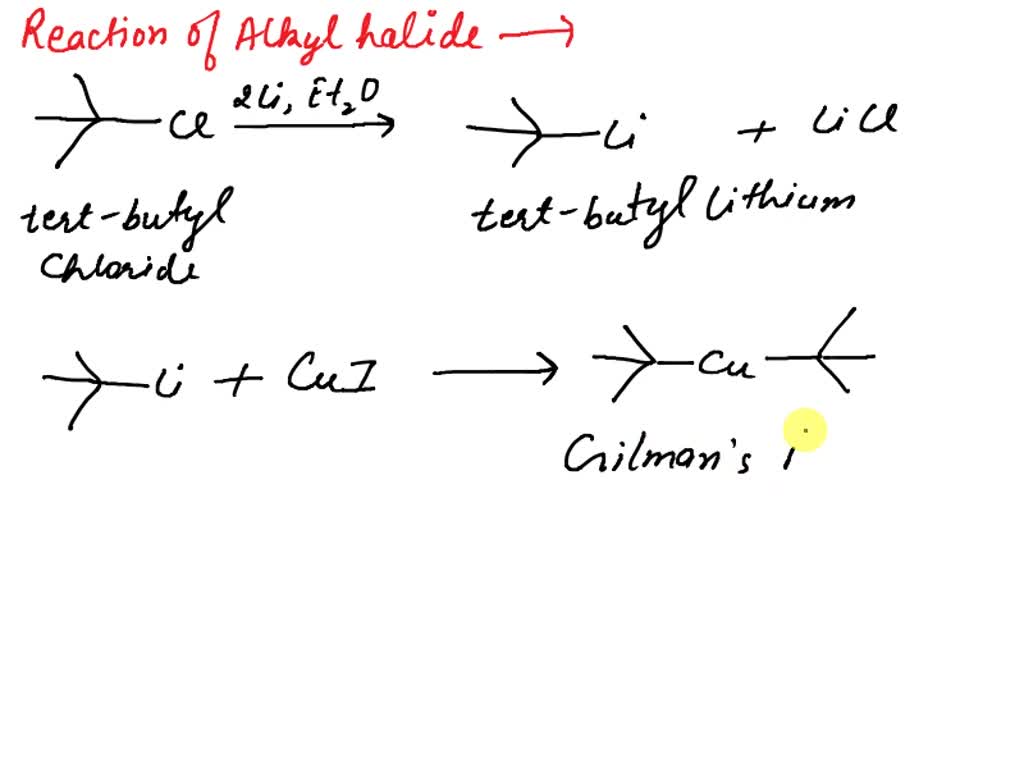 Reaction of Alkyl halide →
Cl 2Li, Et2O → Li + LiCl
tert-butyl Chloride
tert-butyl Lithium
Li + CuI → Cu
Gilman's